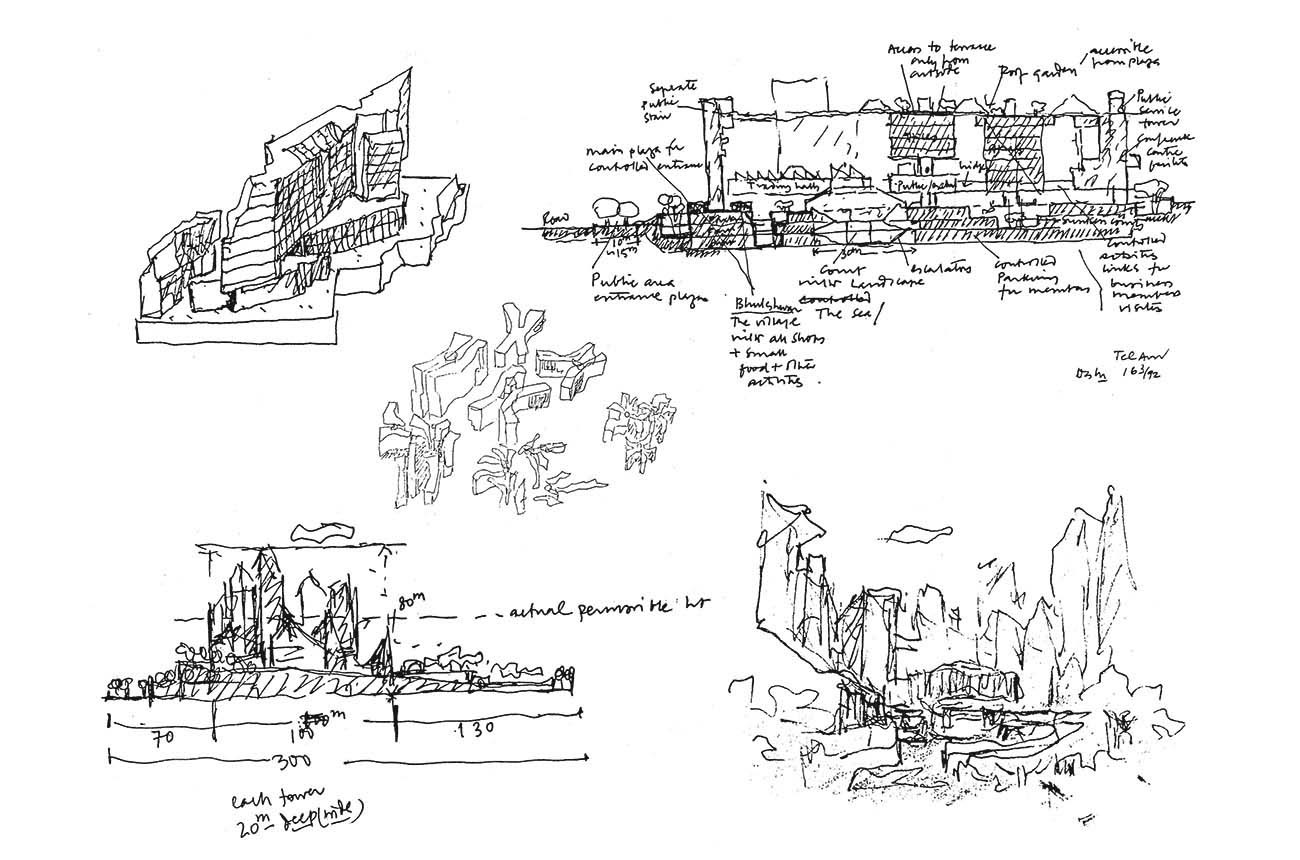 Access to terrace
only from
outside
Roof garden
accessible
from plaza
Seperate
Public
Stair
Public
Service
tower
Conference
Centre
facilities
main plaza for
controlled entrance
Trading halls
bridge
Road
10m
15m
30m
Public area
entrance plaza
Court
with Landscape
controlled
The Sea
escalators
controlled
Parking
for members
controlled
links for
business
members
visitors
The village
with all shops
+ small
food + other
activities.
Tel Aviv
163/92
80m
actual permissible ht
70
m
130
300
each tower
20m deep (wide)